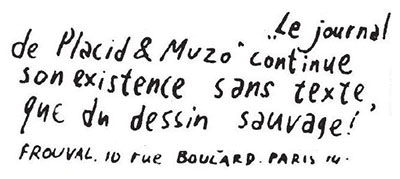 „Le journal
de Placid & Muzo" continue
son existence sans texte,
que du dessin sauvage!
FROUVAL. 10 rue BOULARD. PARIS 14.